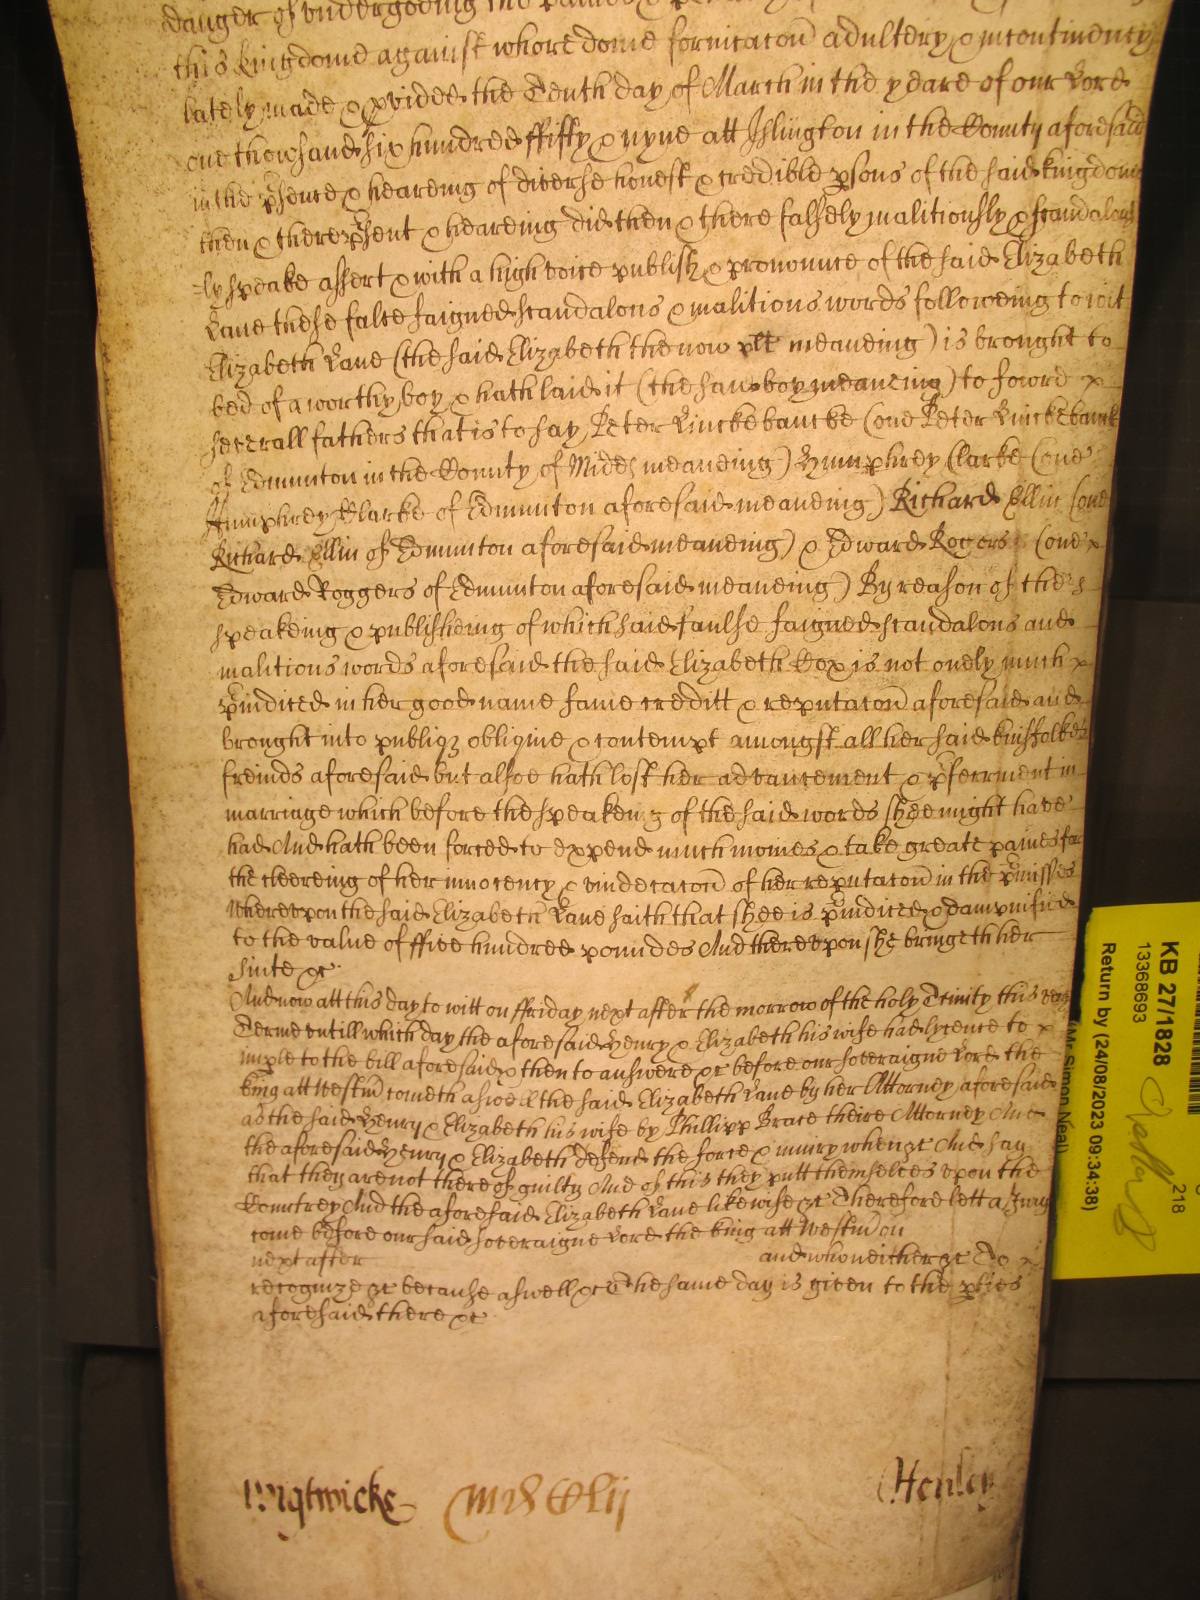 danger of undergoeing the paines &
this kingdome against whoredome fornicacon adultery & incontinency
lately made & pvided the Tenth day of March in the yeare of our Lord
one thowsand six hundred ffifty & nyne att Islington in the County aforesaid
in the psence & heareing of diverse honest & credible psons of the said kingdome
then & there psent & heareing did then & there falsely malitiously & scandalous
=ly speake assert & with a high voice publish & pronounce of the said Elizabeth
Lane these false faigned scandalous & malitious words followeing to wit
Elizabeth Lane (the said Elizabeth the now plt meaneing) is brought to
bed of a worthy boy & hath laid it (the said boy meaneing) to fowr
severall fathers that is to say Peter Linckebancke (one Peter Linckebanck
of Edmunton in the County of Midds meaneing) Humphrey Clarke (one
Humphrey Clarke of Edmunton aforesaid meaneing) Richard Ellin (one
Richard Ellin of Edmunton aforesaid meaneing) & Edward Rogers (one
Edward Roggers of Edmunton aforesaid meaneing) By reason of the
speakeing & publisheing of which said faulse faigned scandalous and
malitious words aforesaid the said Elizabeth Cox is not onely much
piudiced in her good name fame creditt & reputacon aforesaid and
brought into publiq oblique & contempt amongst all her said kinsfolkes
freinds aforesaid but alsoe hath lost her advancement & pferrment in
marriage which before the speakeng of the said words shee might have
had And hath been forced to expend much monies & take greate paines for
the cleereing of her innocency & vindecacon of her reputacon in the pmisses
Whereupon the said Elizabeth Lane saith that shee is piudiced & dampnified
to the value of ffive hundred poundes And thereupon she bringeth her
suite &c
And now att this day to witt on ffriday next after the morrow of the holy Trinity this same
Terme untill which day the aforesaid Henry & Elizabeth his wife had lycence to
imple to the bill aforesaid & then to answere &c before our soveraigne Lord the
king att Westm cometh aswell the said Elizabeth Lane by her Attorney aforesaid
as the said Henry & Elizabeth his wife by Phillipp Brace theire Attorney And
the aforesaid Henry & Elizabeth defend the force & iniury when &c And say
that they are not thereof guilty And of this they putt themselves upon the
Countrey And the aforesaid Elizabeth Lane likewise &c Therefore lett a Jury
come before our said soveraigne Lord the king att Westm on
next after and who neither &c To
recognize &c because aswell &c The same day is given to the pties
aforesaid there &c
Wightwicke Henley
KB 27/1828
13368693
218
Return by (24/08/2023 09:34:38)
(Mr Simon Neal)